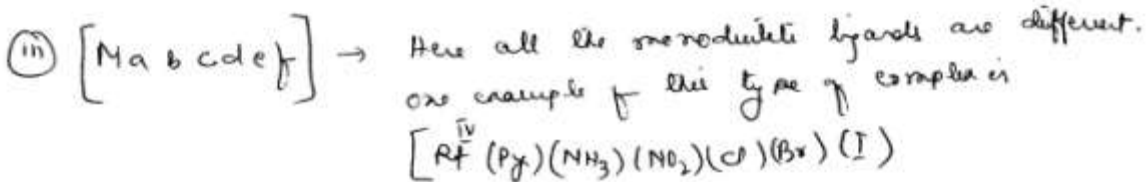 (iii) [Mabcdef] → Here all the monodentate ligands are different.
one example of this type of complex is
[Pt^IV (Py)(NH3)(NO2)(Cl)(Br)(I)